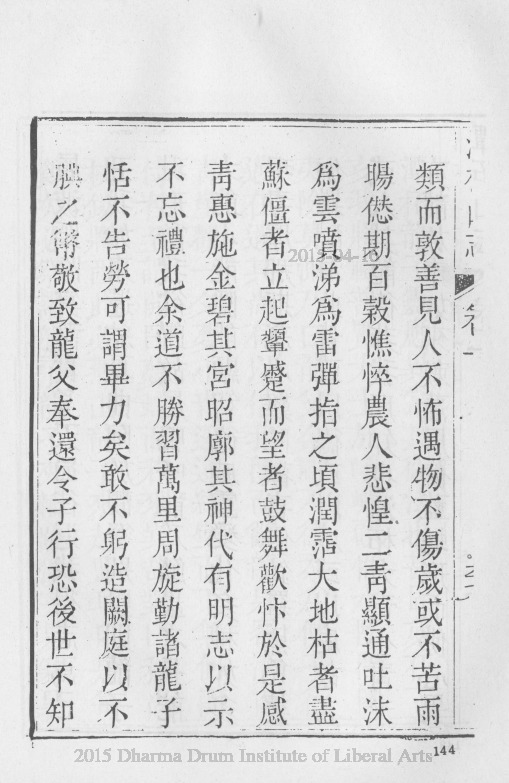 類而敦善見人不怖遇物不傷歲或不苦雨
暘愆期百穀憔悴農人悲惶二靑顯通吐沫
爲雲噴涕爲雷彈指之頃潤霑大地枯者盡
蘇僵者立起顰蹙而望者鼓舞歡忭於是感
靑惠施金碧其宮昭廓其神代有明志以示
不忘禮也余道不勝習萬里周旋勤諸龍子
恬不告勞可謂畢力矣敢不躬造闕庭以不
腆之幣敬致龍父奉還令子行恐後世不知
2015-04-16
144
2015 Dharma Drum Institute of Liberal Arts